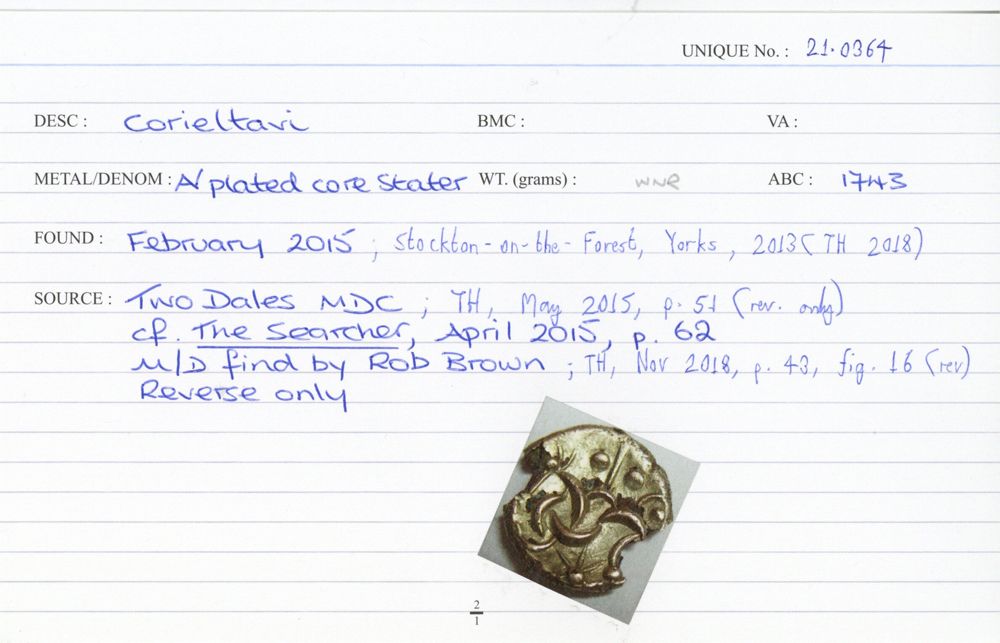 UNIQUE No. : 21.0364
DESC : Corieltavi BMC : VA :
METAL/DENOM : A/ plated core stater WT. (grams) : WNR ABC : 1743
FOUND : February 2015 ; Stockton-on-the-Forest, Yorks, 2013 (TH 2018)
SOURCE : Two Dales MDC ; TH, May 2015, p. 51 (rev. only)
cf. The Searcher, April 2015, p. 62
M/D find by Rob Brown ; TH, Nov 2018, p. 43, fig. 16 (rev)
Reverse only
2
1